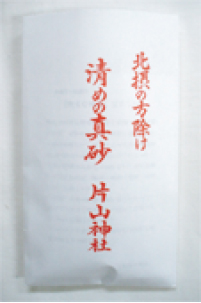 北摂の方除け
清めの真砂 片山神社